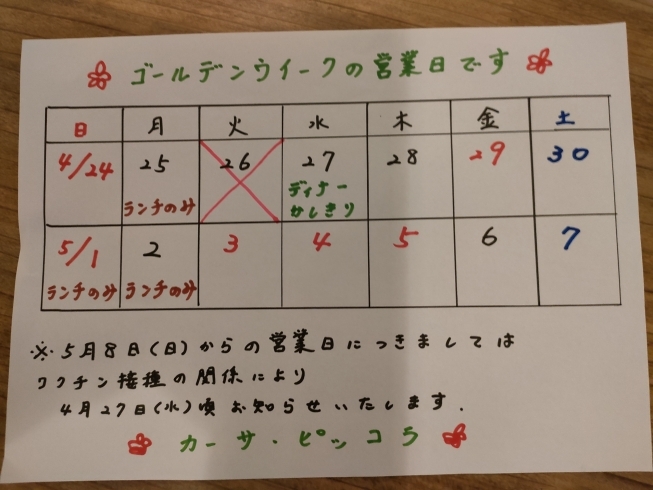 ゴールデンウイークの営業日です
日 月 火 水 木 金 土
4/24 25 26 27 28 29 30
ランチのみ ディナー
かしきり
5/1 2 3 4 5 6 7
ランチのみ ランチのみ
※ 5月8日(日)からの営業日につきましては
ワクチン接種の関係により
4月27日(水)頃お知らせいたします.
カーサ・ピッコラ